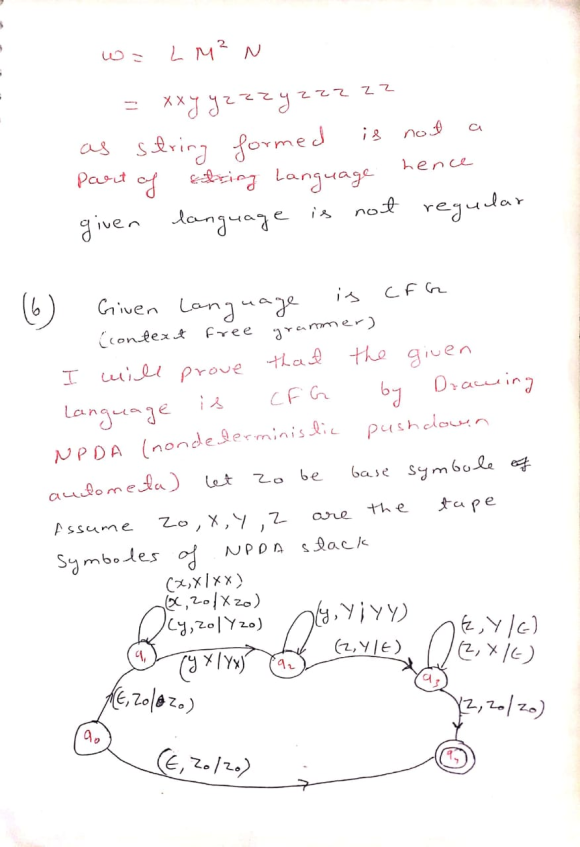 w = L M² N
= xxyyzzzyzzz zz
as string formed is not a
Part of string Language hence
given language is not regular
(6) Given Language is CFG
(context free grammer)
I will prove that the given
Language is CFG by Drawing
NPDA (nondeterministic pushdown
autometa) let Zo be base symbole of
Assume Zo, X, Y, Z are the tape
Symboles of NPDA stack
(x,X|XX)
(x,Zo|XZo)
(y,Zo|YZo)
(y,Y|YY)
(z,Y|ε)
(z,Y|ε)
(z,X|ε)
q₁
(y X|YX)
q₂
q₃
(ε,Zo|Zo)
(z,Zo|Zo)
q₀
(ε,Zo|Zo)